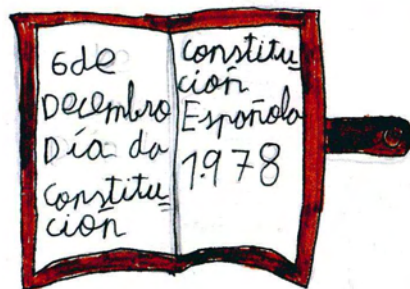 6 de
Decembro
Día da
Constitu
ción
Constitu
ción
Española
1.978